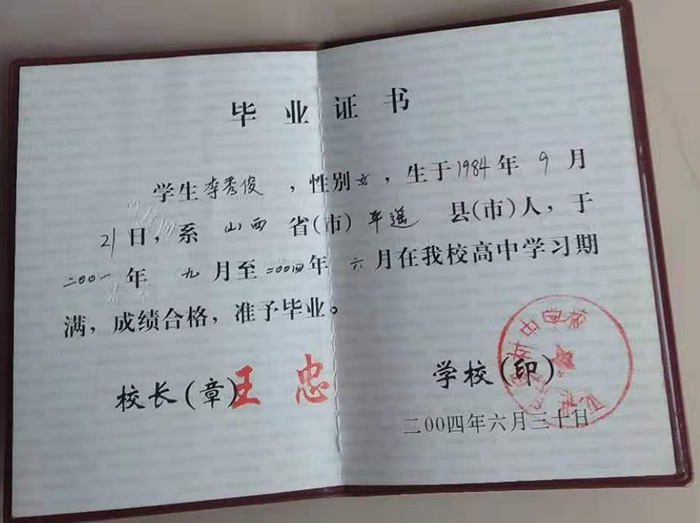 毕业证书
学生李秀俊，性别女，生于1984年9月
21日，系山西省(市)平遥县(市)人，于
二00一年九月至二00四年六月在我校高中学习期
满，成绩合格，准予毕业。
校长(章)王忠
学校(印)
二00四年六月三十日